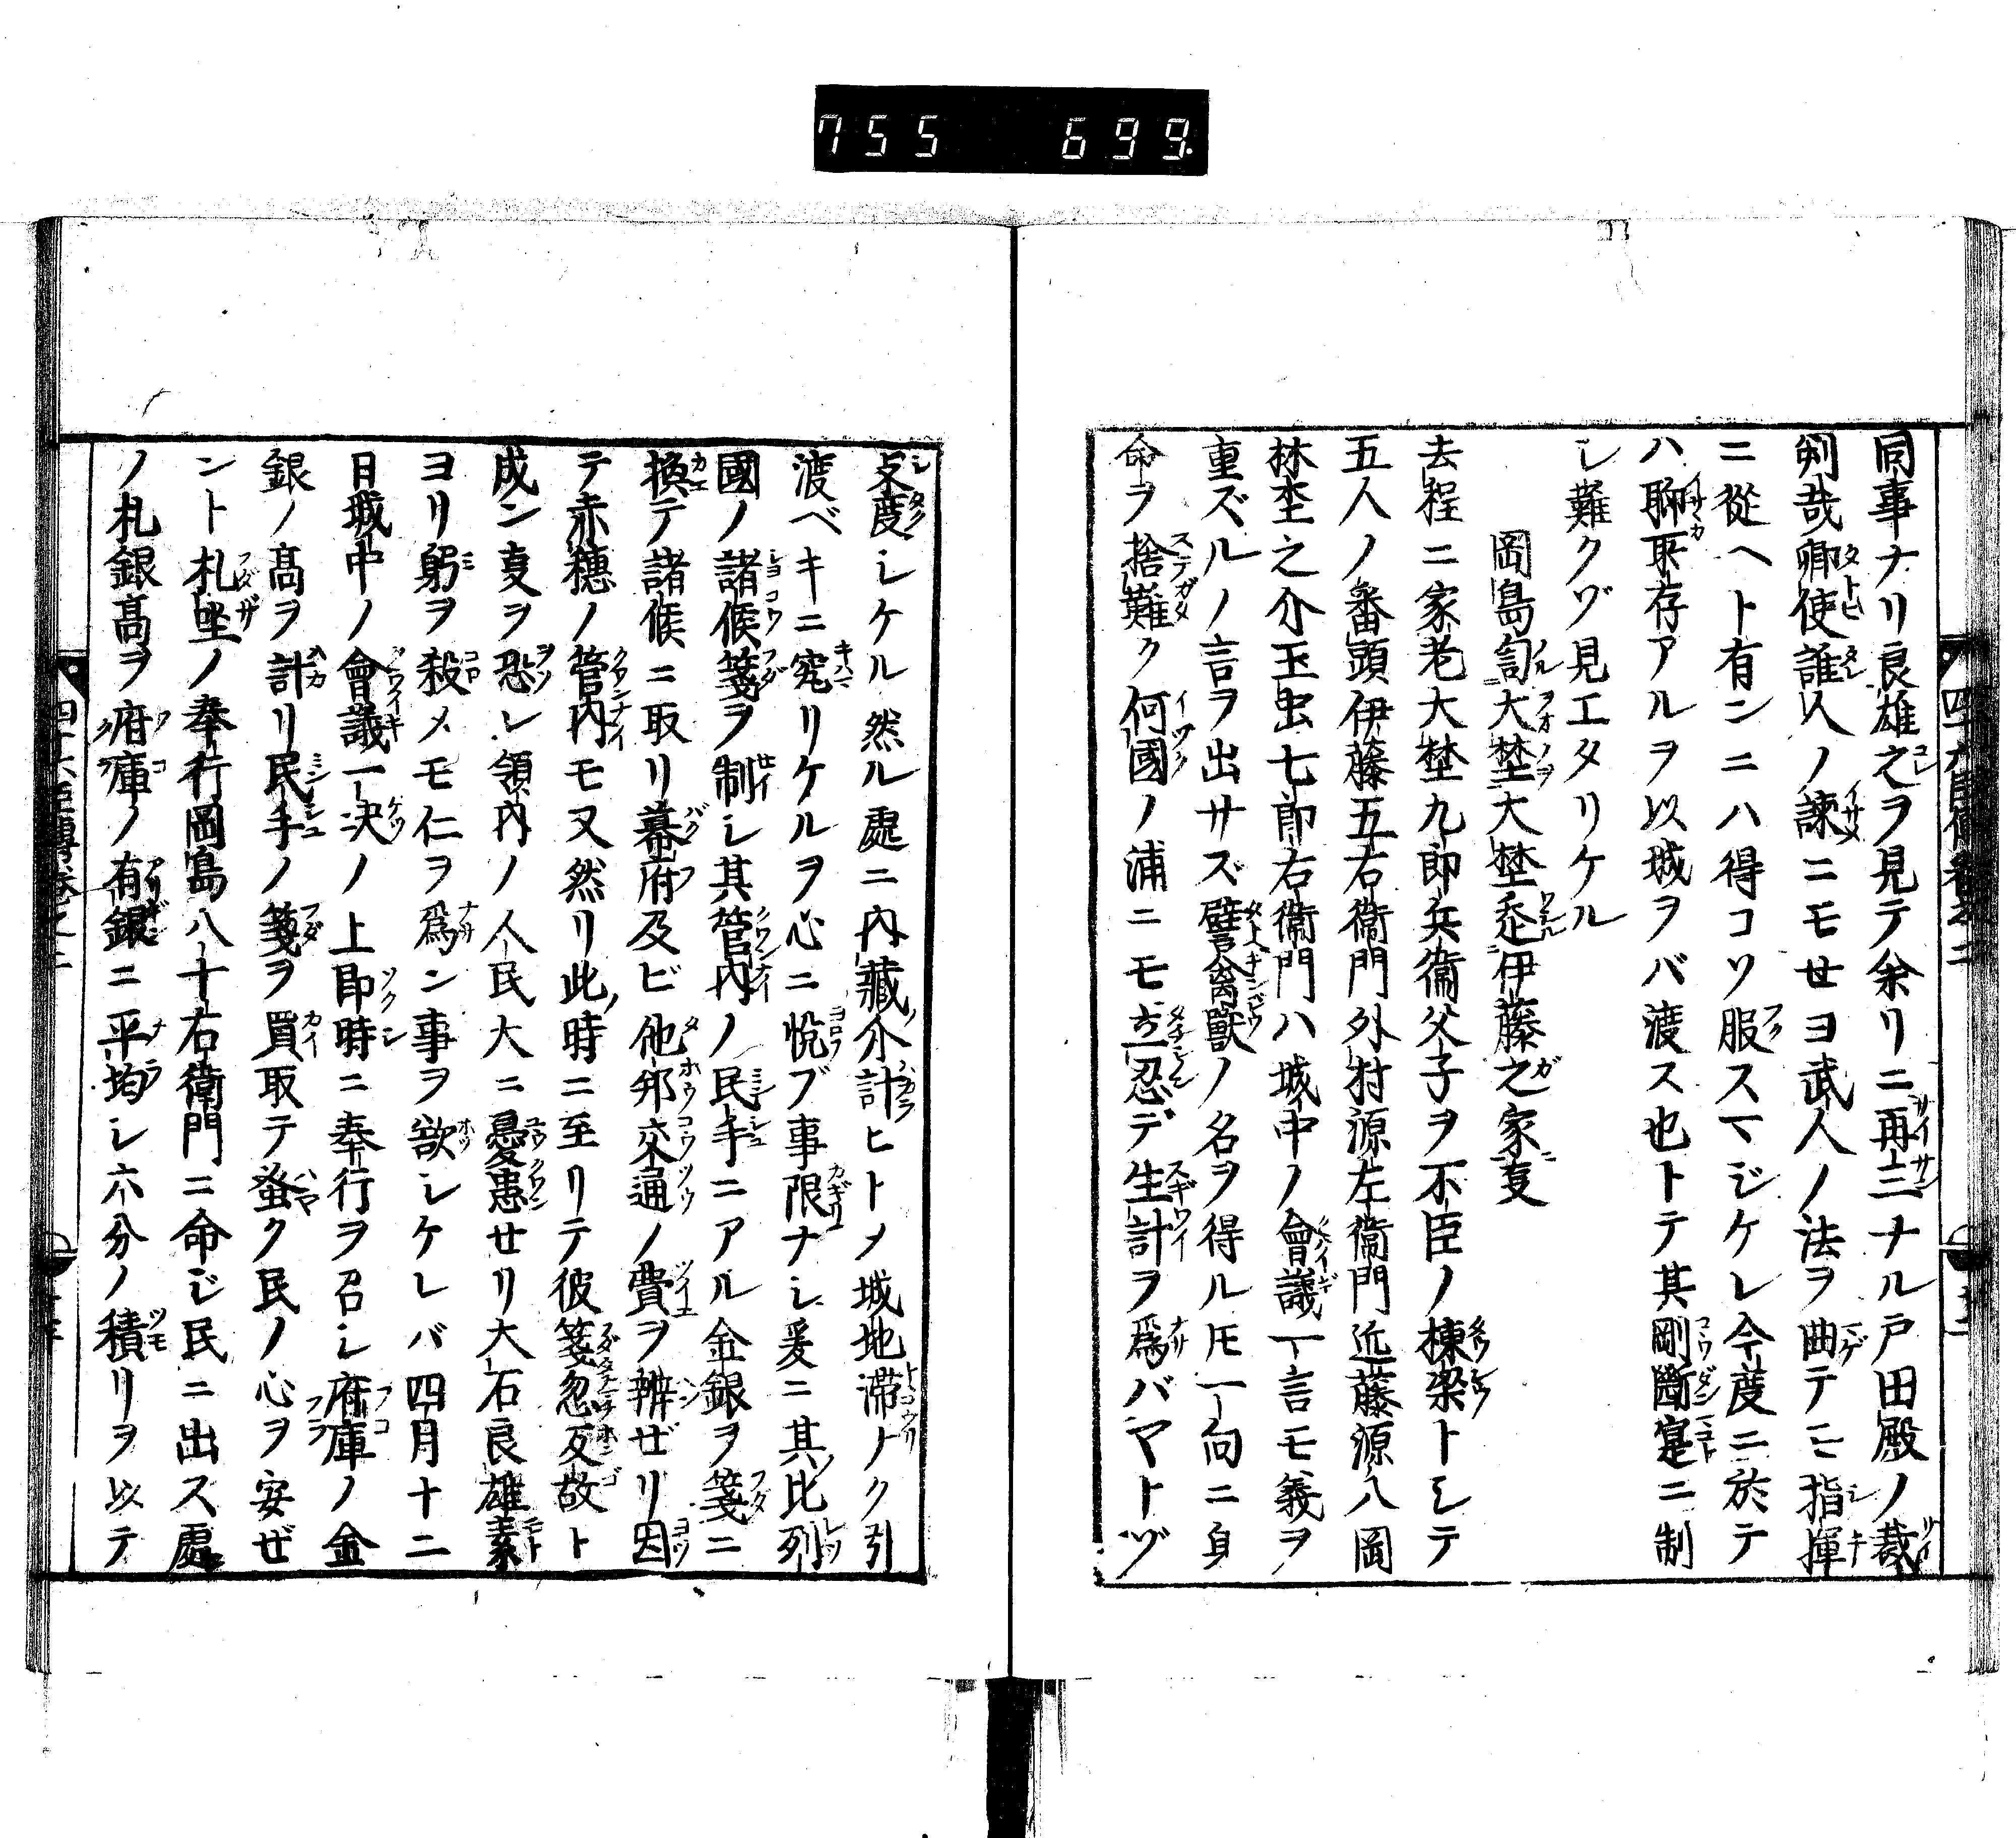 755 699.
同事ナリ良雄之ヲ見テ余リニ再三ナル戸田殿ノ裁
判哉卿使誰人ノ諫ニモセヨ武人ノ法ヲ曲テモ指揮
ニ從ヘト有ンニハ得コソ服スマジケレ今度ニ於テ
ハ聊所存アルヲ以城ヲバ渡ス也トテ其剛断寔ニ制
シ難クゾ見エタリケル
岡島訇大埜大埜恚伊藤之家叓
去程ニ家老大埜九郎兵衞父子ヲ不臣ノ棟梁トシテ
五人ノ番頭伊藤五右衞門外村源左衞門近藤源八岡
林杢之介玉虫七郎右衞門ハ城中ノ會議一言モ義ヲ
重ズルノ言ヲ出サズ譬禽獸ノ名ヲ得ルトモ一向ニ身
命ヲ捨難ク何國ノ浦ニモ立忍デ生計ヲ爲バヤトゾ
支度シケル然ル處ニ内藏介計ヒトメ城地滞ナク引
渡ベキニ究リケルヲ心ニ悦ブ事限ナシ爰ニ其比列
國ノ諸候箋ヲ制シ其管内ノ民手ニアル金銀ヲ箋ニ
換テ諸候ニ取リ幕府及ビ他邦交通ノ費ヲ辨ゼリ因
テ赤穗ノ管内モ又然リ此時ニ至リテ彼箋忽反故ト
成ン叓ヲ恐レ領内ノ人民大ニ憂患セリ大石良雄素
ヨリ躬ヲ殺メモ仁ヲ爲ン事ヲ欲シケレバ四月十二
日城中ノ會議一決ノ上即時ニ奉行ヲ召シ府庫ノ金
銀ノ髙ヲ計リ民手ノ箋ヲ買取テ蚤ク民ノ心ヲ安ゼ
ント札坐ノ奉行岡島八十右衛門ニ命ジ民ニ出ス處
ノ札銀髙ヲ府庫ノ有銀ニ平均シ六分ノ積リヲ以テ